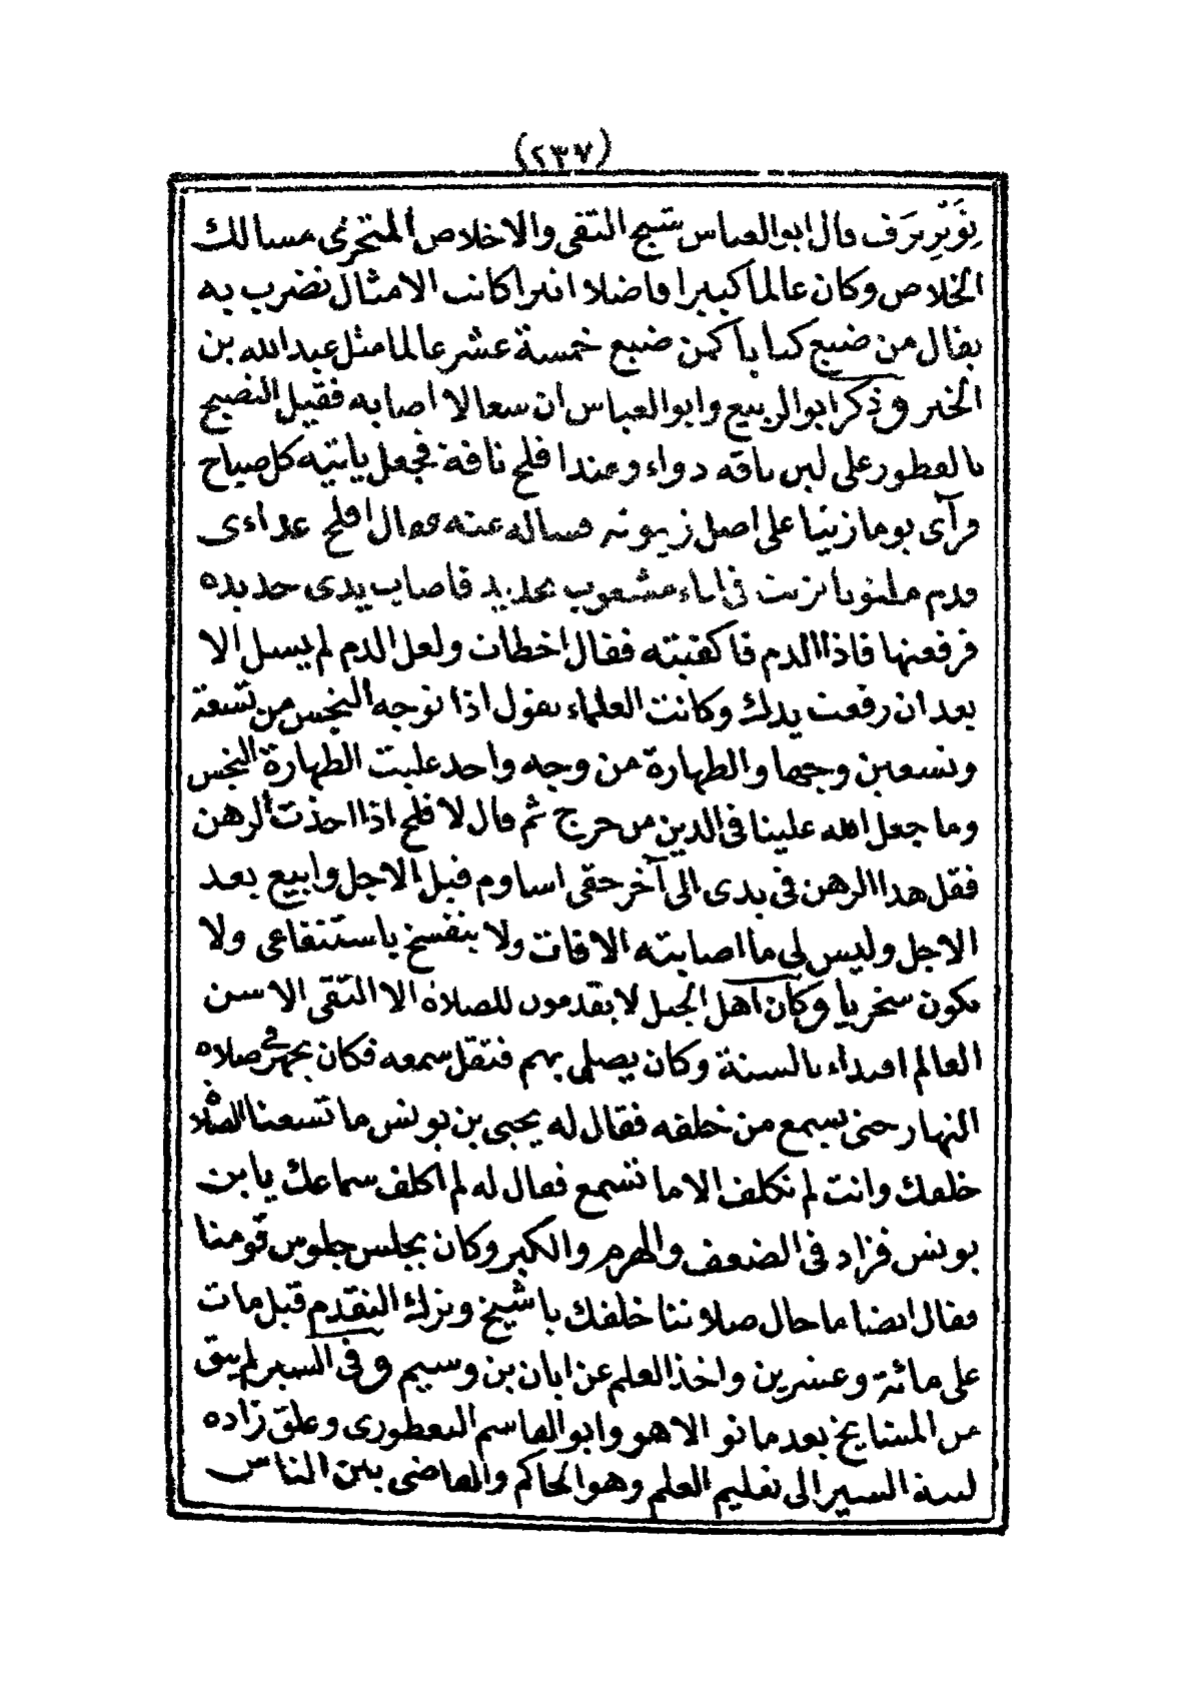 (٢٣٧)
نِوَيْرِيَزَف قال ابو العباس شيخ التقى والاخلاص المتحرى مسالك
الخلاص وكان عالما كبيرا فاضلا اثيرا كانت الامثال تضرب به
يقال من ضيع كتابا كمن ضيع خمسة عشر عالما مثل عبد الله بن
الخير وذكر ابو الربيع وابو العباس ان سعالا اصابه فقيل النصيح
بالفطور على لبن ناقه دواء وعند افلح ناقة فجعل ياتيه كل صباح
فرآى يوما زيتا على اصل زيتونه فساله عنه فقال افلح غداءى
ودم ملتويا بزيت فى اناء مشعوب بحديد فاصاب يدى حديده
فرفعتها فاذا الدم فاكفيته فقال اخطات ولعل الدم لم يسل الا
بعد ان رفعت يدك وكانت العلماء تقول اذا توجه النجس من تسعة
وتسعين وجها والطهارة من وجه واحد غلبت الطهارة النجس
وما جعل الله علينا فى الدين من حرج ثم قال لافلح اذا اخذت الرهن
فقل هذا الرهن فى يدى الى آخر حقى اساوم قبل الاجل وابيع بعد
الاجل وليس لى ما اصابته الافات ولا ينفسخ باستنفاعى ولا
يكون سخريا وكان اهل الجبل لا يقدمون للصلاة الا التقى الاسن
العالم اقتداء بالسنة وكان يصلى بهم فثقل سمعه فكان يجهر فى صلاه
النهار حتى يسمع من خلفه فقال له يحيى بن يونس ما تسعنا الصلاة
خلفك وانت لم تكلف الا ما تسمع فقال له لم اكلف سماعك يا بن
يونس فزاد فى الضعف والهرم والكبر وكان يجلس جلوس قومنا
فقال ايضا ما حال صلاتنا خلفك يا شيخ وترك التقدم قبل مات
على مائة وعشرين واخذ العلم عن ابان بن وسيم وفى السير لم يبق
من المشايخ بعد ما نو الا هو وابو القاسم البغطورى وعلق زاده
لسنة السير الى تعليم العلم وهو الحاكم والقاضى بين الناس